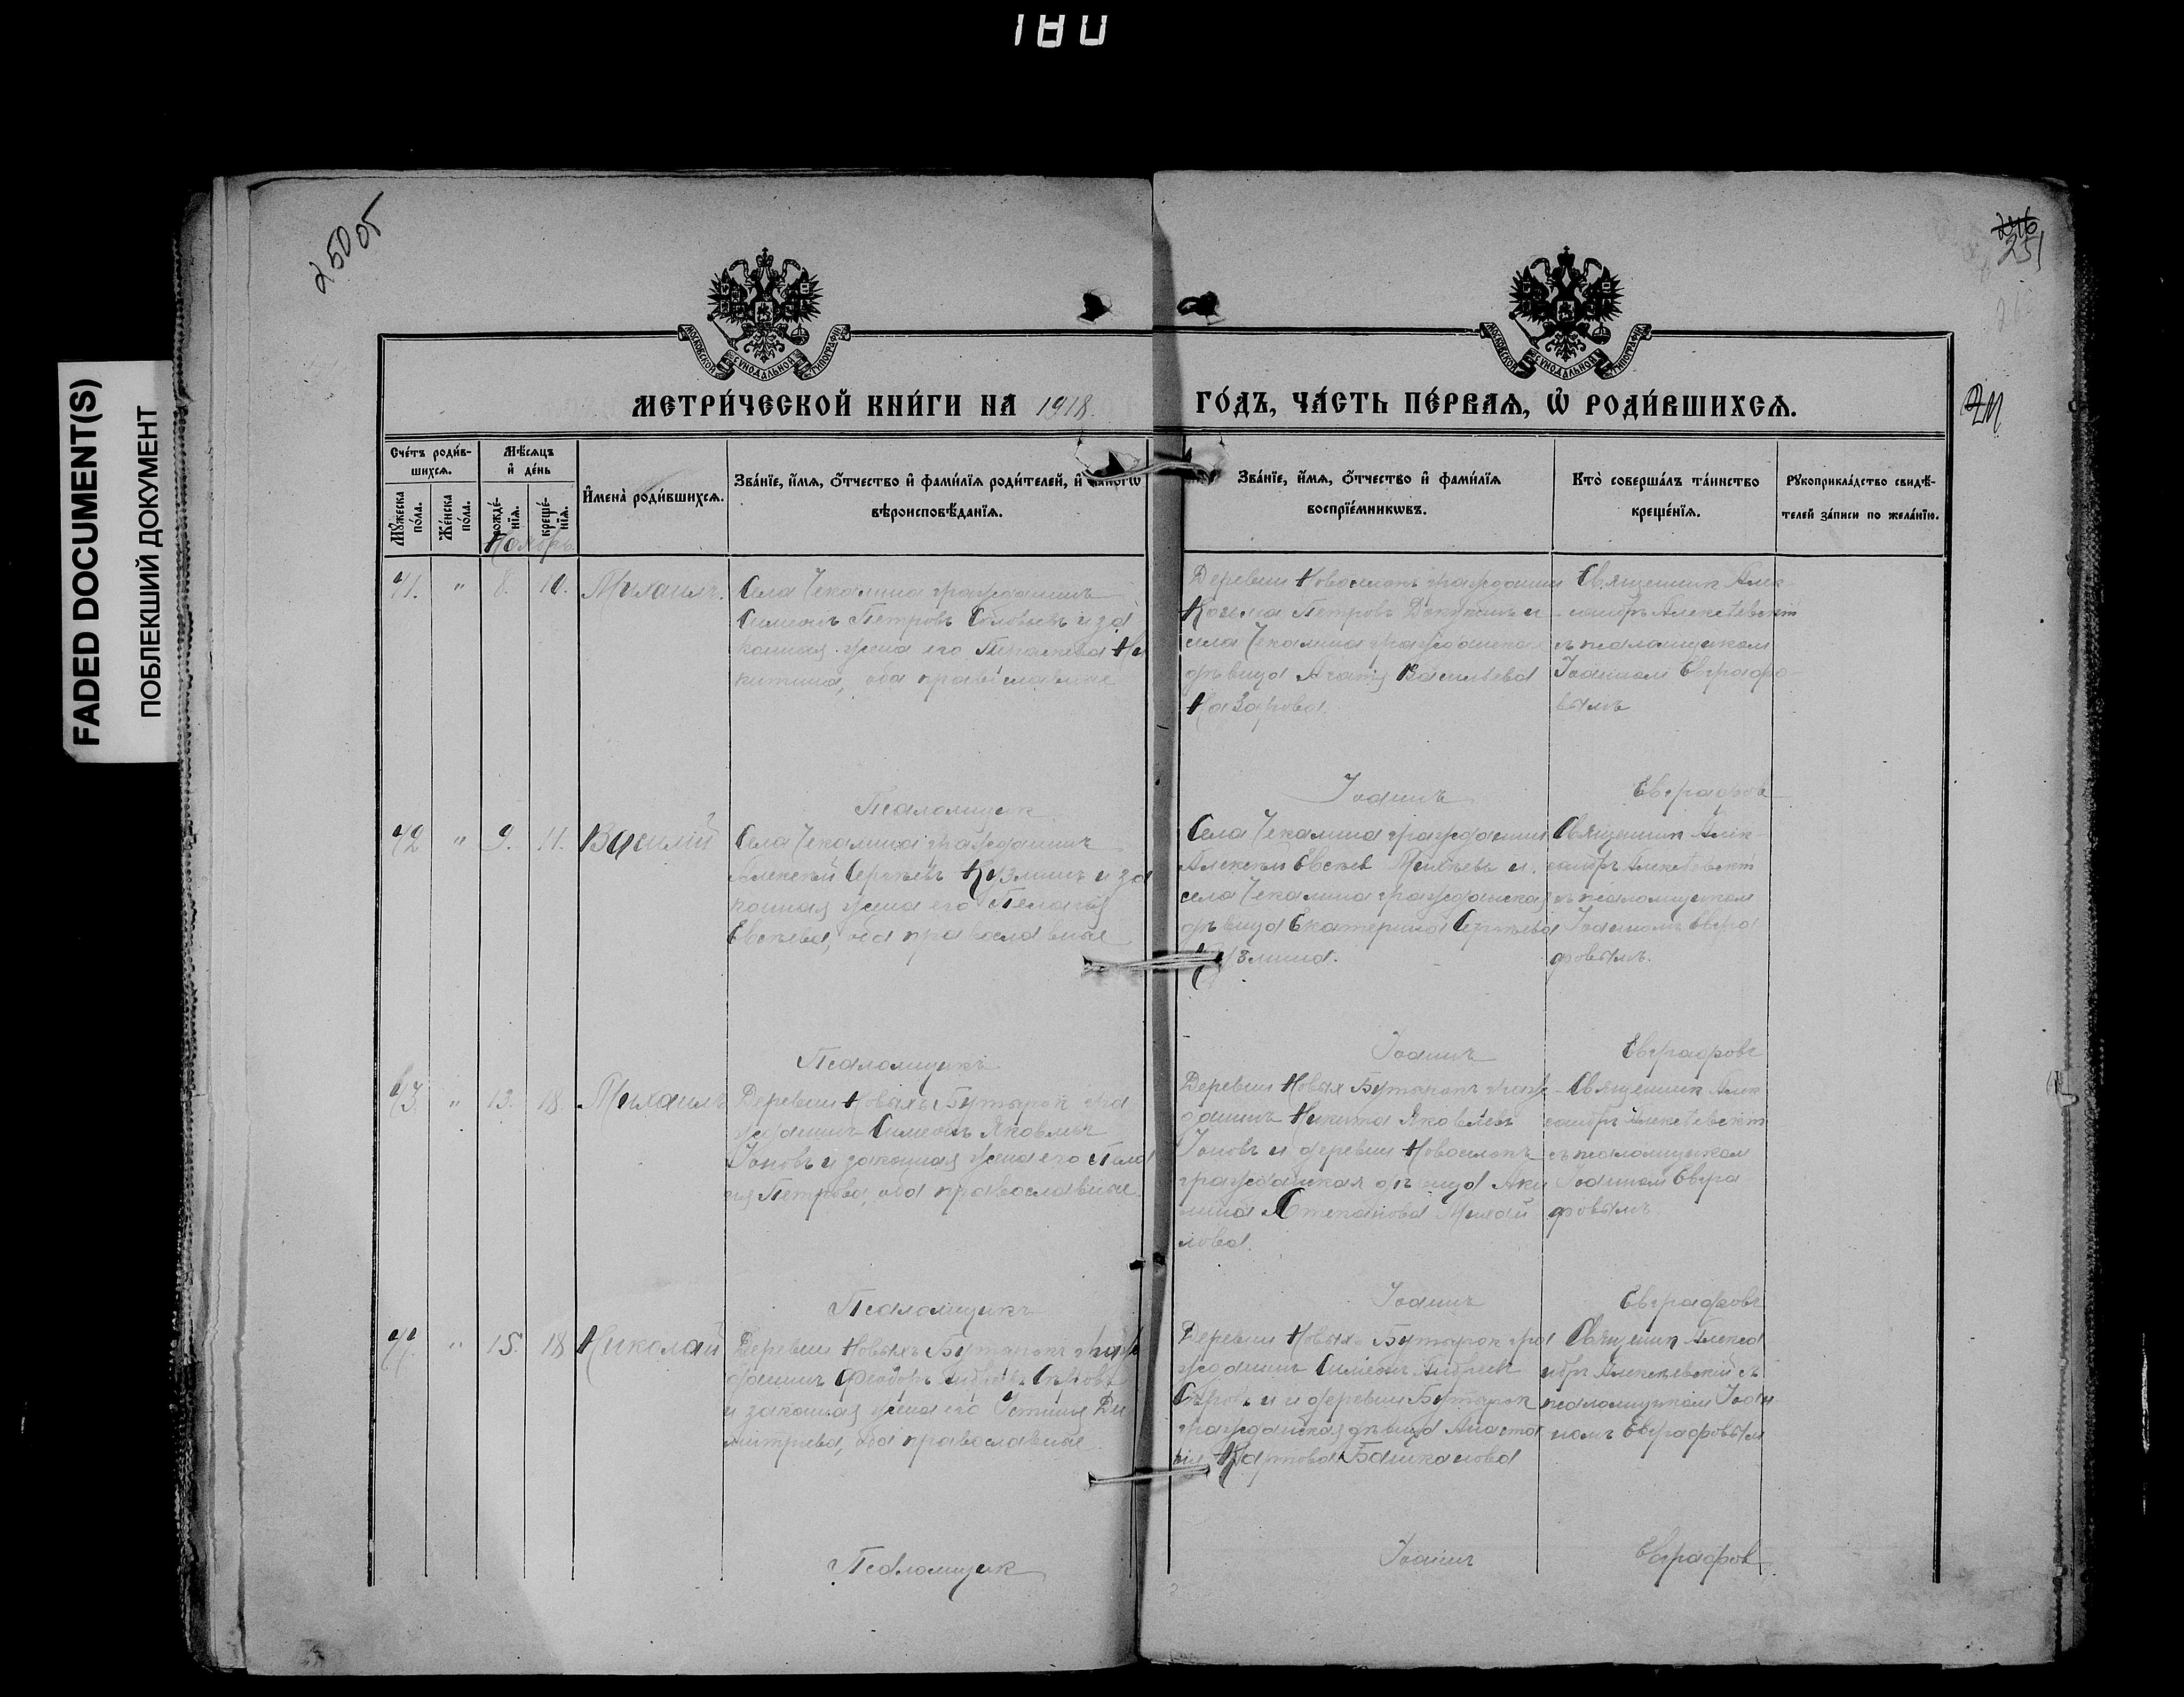 180
FADED DOCUMENT(S)
ПОБЛЕКШИЙ ДОКУМЕНТ
250 об
246
251
МОСКОВСКОЙ СѴНОДАЛЬНОЙ ТИПОГРАФІИ
МОСКОВСКОЙ СѴНОДАЛЬНОЙ ТИПОГРАФІИ
МЕТРИ́ЧЕСКОЙ КНИ́ГИ НА 1918. ГО́ДЪ, ЧА́СТЬ ПЕ́РВАѦ, Ѡ҆ РОДИ́ВШИХСѦ.
Сче́тъ роди́в-
шихсѧ.
Мꙋ́жеска по́ла.
Же́нска по́ла.
Мѣ́сѧцъ
и҆ де́нь
рожде́-
нїѧ.
креще́-
нїѧ.
И҆мена̀ роди́вшихсѧ.
Зва́нїе, и҆́мѧ, ѻ҆́тчество и҆ фами́лїѧ роди́телей, и҆
вѣроисповѣ́данїѧ.
Зва́нїе, и҆́мѧ, ѻ҆́тчество и҆ фами́лїѧ
воспрїе́мникѡвъ.
Кто̀ соверша́лъ та́инство
креще́нїѧ.
Рꙋкоприкла́дство свидѣ́-
телей за́писи по жела́нїю.
Ноябрь
41. " 8. 10. Михаилъ.
Села Чекалина гражданинъ
Симеонъ Петровъ Соловьевъ и за
конная жена его Параскева Ни
китина, оба православные
Деревни Новоселокъ гражданин
Козьма Петровъ и
села Чекалина гражданская
дѣвица Агафія Васильева
Назарова.
Священник Алек-
сандръ Алексѣевскій
съ псаломщиком
Іоанном Евграфо-
вымъ
Псаломщик Іоаннъ Евграфов
42 " 9. 11. Василій
Села Чекалина гражданинъ
Алексѣй Сергѣевъ Кузминъ и за
конная жена его Пелагія
Евсѣева, оба православные
Села Чекалина гражданин
Алексѣй Евсѣев и.
села Чекалина гражданская
дѣвица Екатерина Сергѣева
Кузмина.
Священник Алек-
сандръ Алексѣевскій
съ псаломщиком
Іоанномъ Евгра
фовымъ.
Псаломщикъ Іоаннъ Евграфовъ
43. " 13. 18. Михаилъ
Деревни Новыхъ Бутырок гра
жданинъ Симеонъ Яковлевъ
Іоновъ и законная жена его Пела
гія Петрова, оба православные.
Деревни Новых Бутырокъ граж
данинъ Никита Яковлевъ
Іоновъ и деревни Новоселокъ
гражданская дѣвица Аки
лина Степанова Михай
лова.
Священник Алек
сандръ Алексѣевскій
съ псаломщиком
Іоанном Евгра
фовымъ.
Псаломщикъ Іоаннъ Евграфовъ
44. " 15. 18 Николай
Деревни Новыхъ Бутырокъ граж
данинъ Феодоръ Андреевъ Сѣровъ
и законная жена его Устинія Ди
митриева, оба православные
Деревни Новыхъ Бутырок гра
жданинъ Симеонъ Андреев
Сѣровъ и деревни Бутырок
гражданская дѣвица Анаста
сія Карпова Башканова
Священник Алекса
ндръ Алексѣевскій съ
псаломщиком Іоан
номъ Евграфовым
Псаломщик Іоаннъ Евграфов